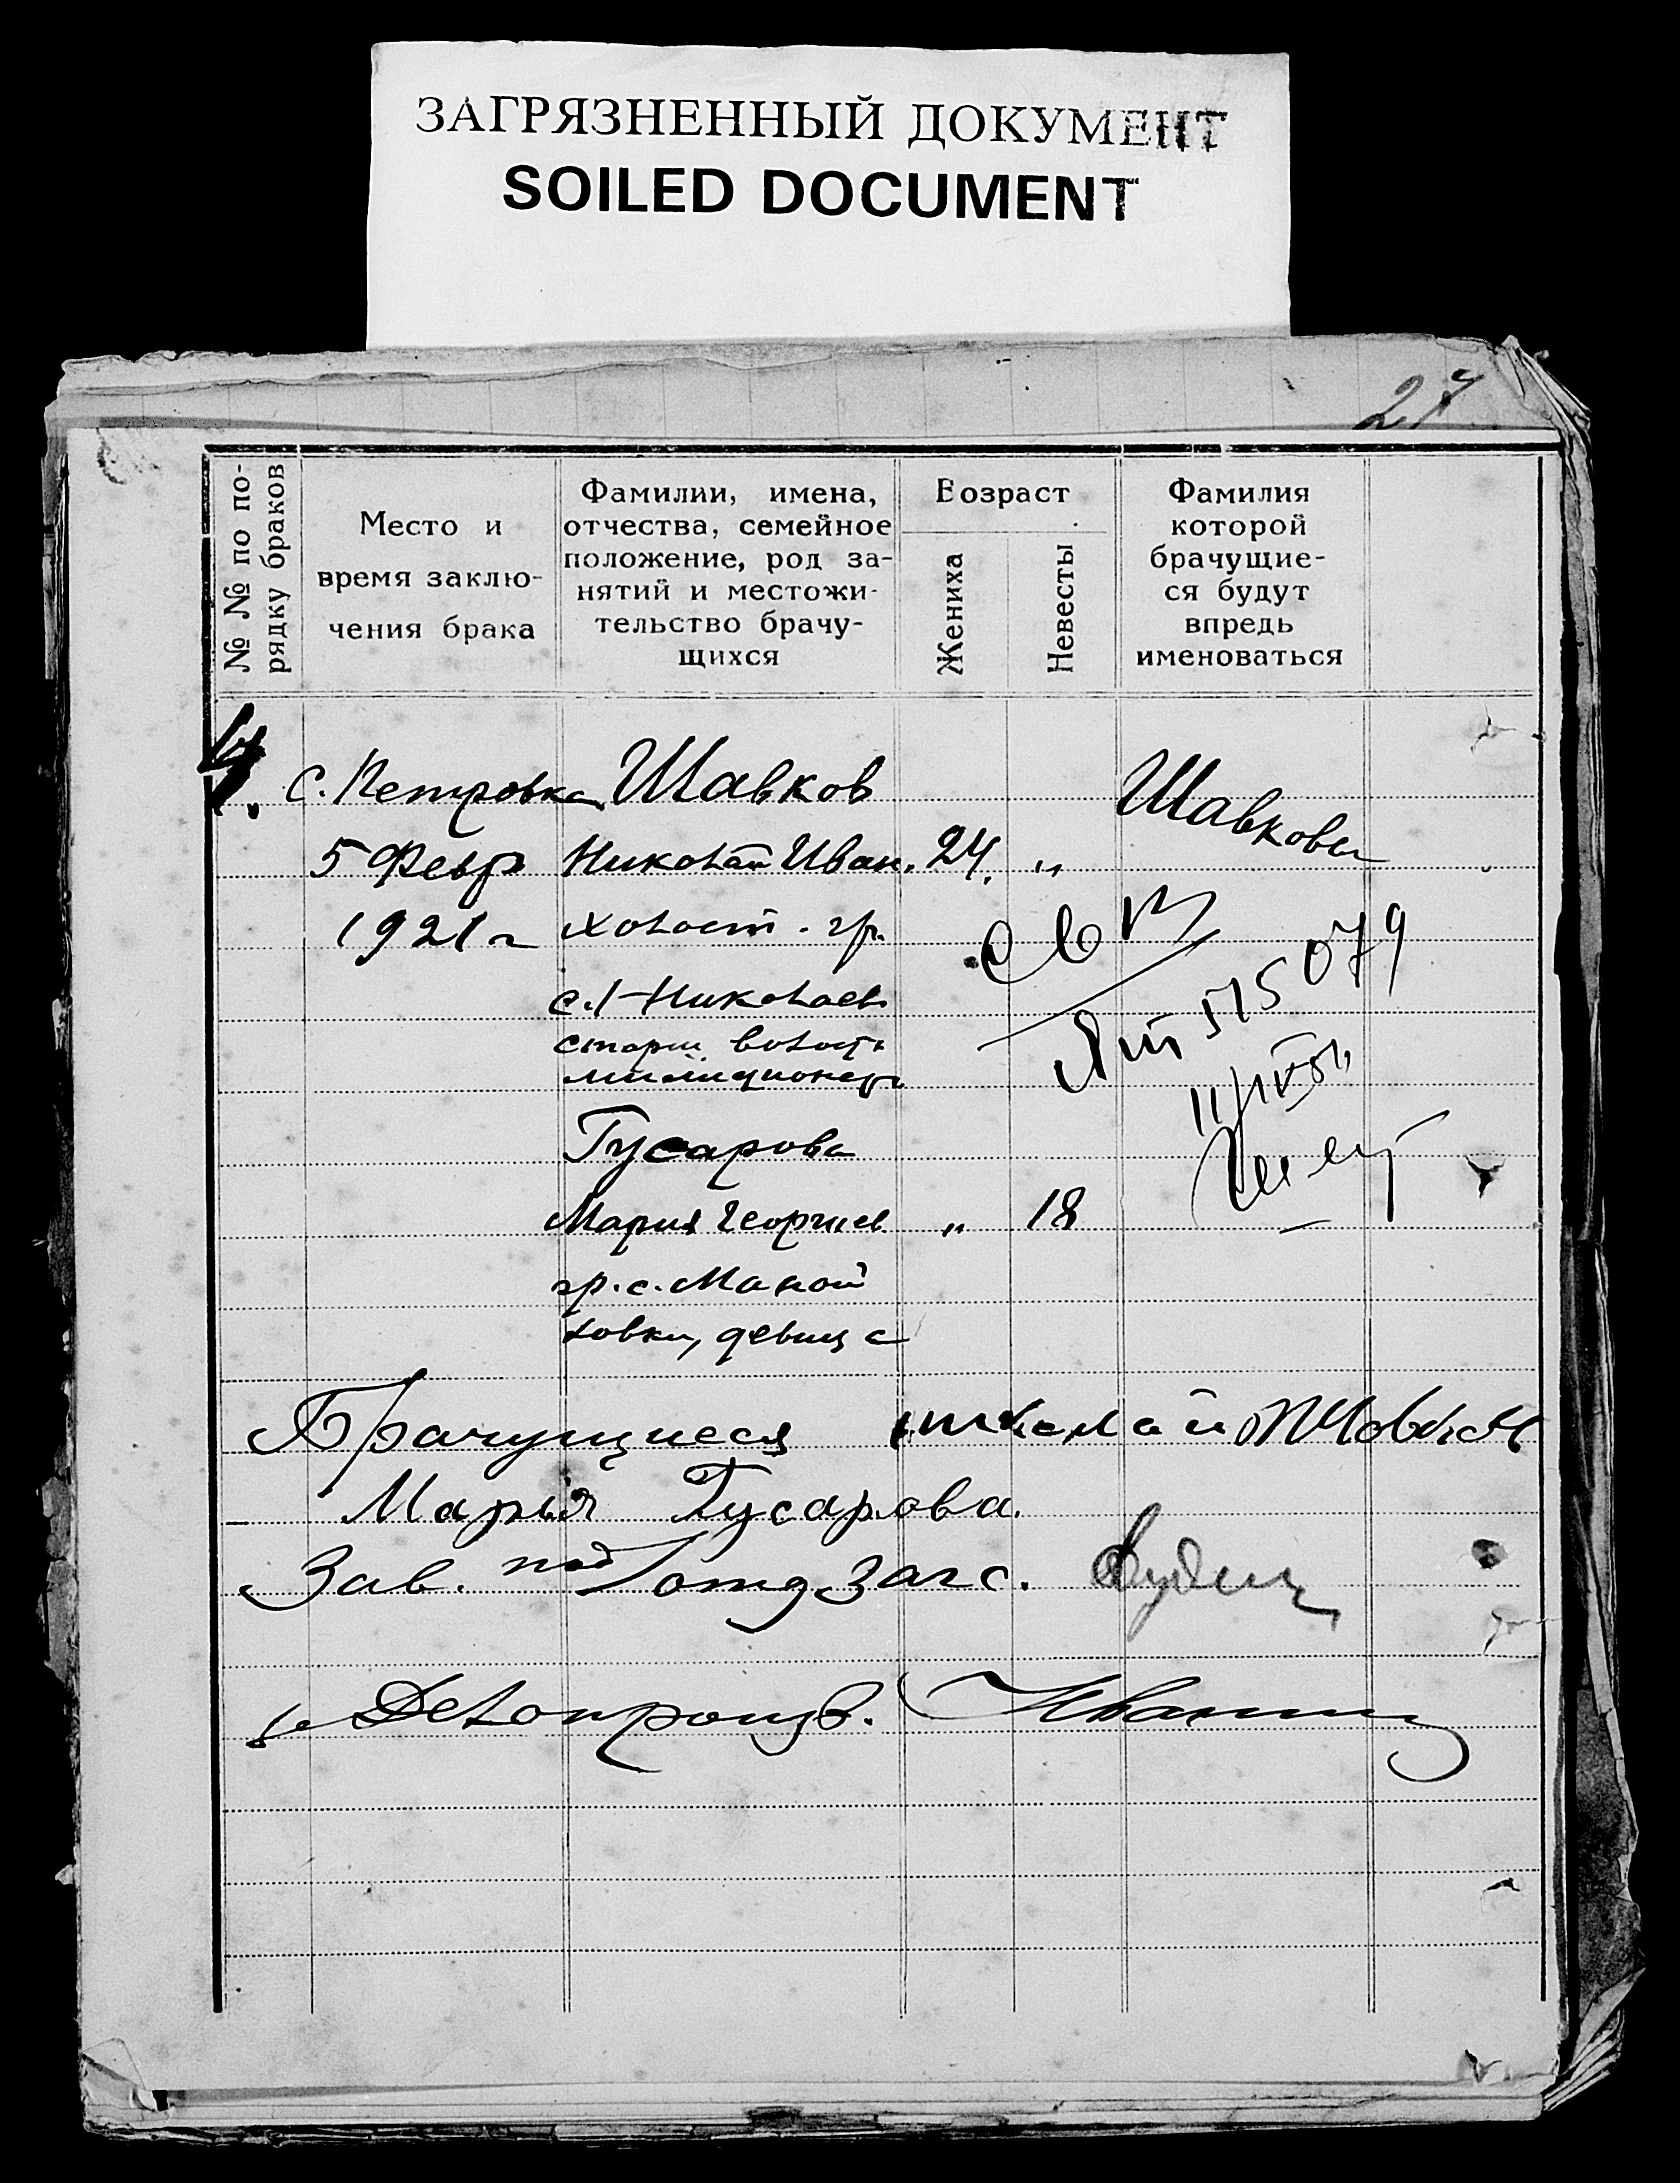 ЗАГРЯЗНЕННЫЙ ДОКУМЕНТ
SOILED DOCUMENT
27
№ № по по-
рядку браков
Место и
время заклю-
чения брака
Фамилии, имена,
отчества, семейное
положение, род за-
нятий и местожи-
тельство брачу-
щихся
Возраст
Жениха
Невесты
Фамилия
которой
брачущие-
ся будут
впредь
именоваться
4.
с. Петровка
5 Февр
1921 г
Шавков
Николай Иван.
холост. гр.
с. Николаев
старш волостн
милиционер
24. „
Шавковы
575 079
Гусарова
Мария Георгиев „ 18
гр. с. Маной
ловки, девица
Брачущиеся Николай Шавков
Марья Гусарова.
Зав. под отд Загс.
Делопроизв.